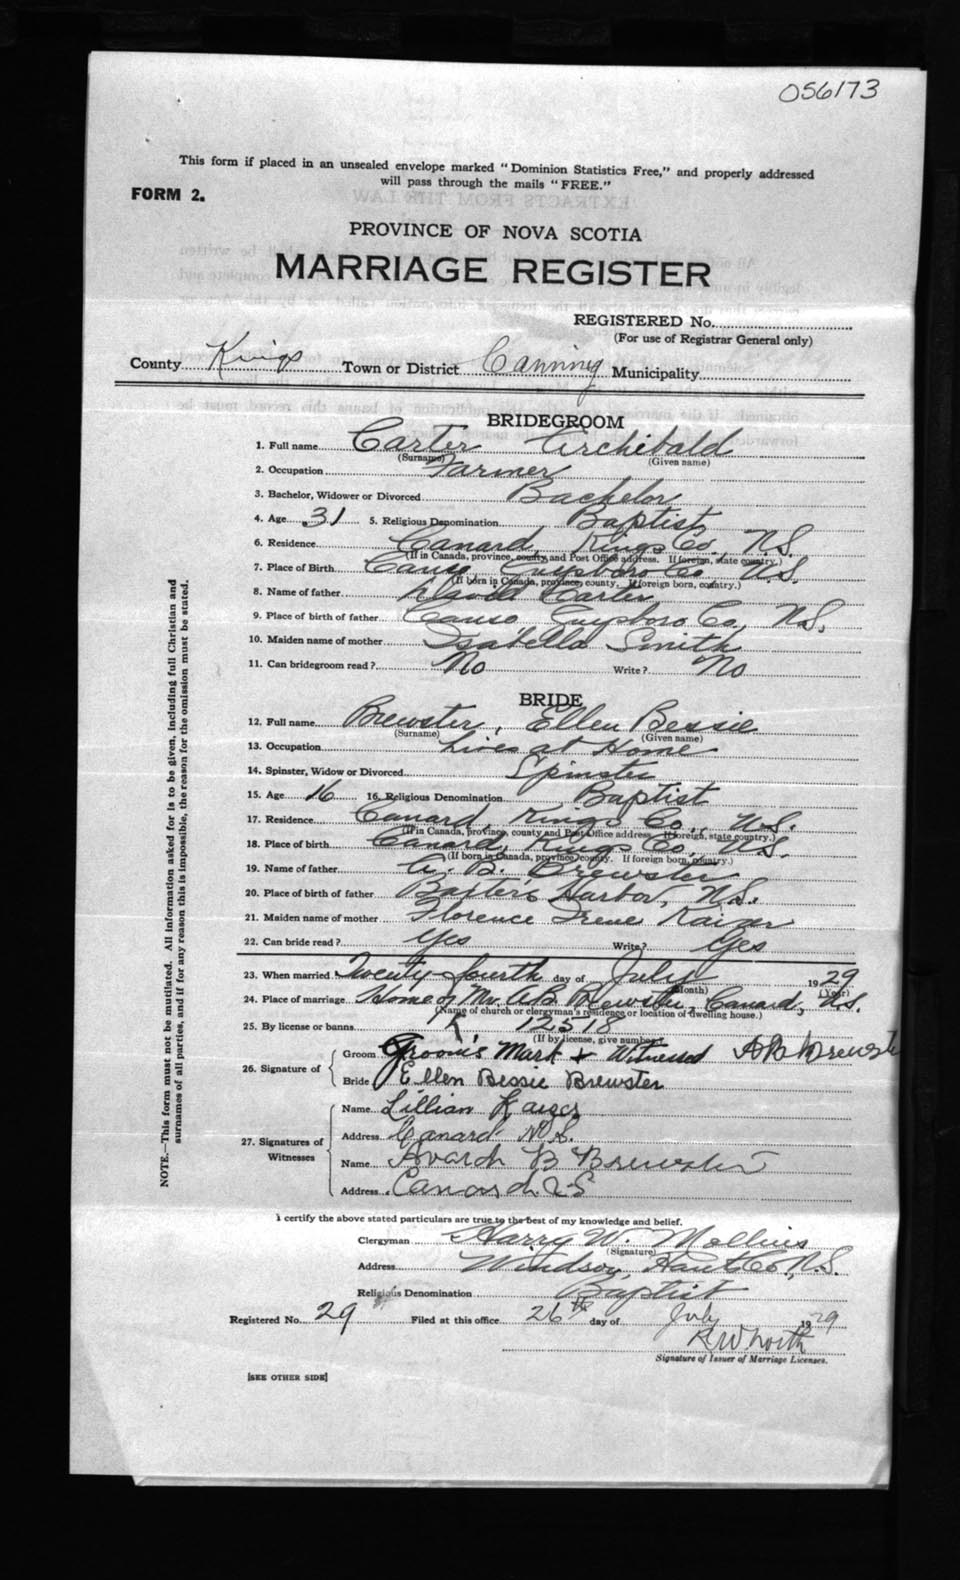 056173
This form if placed in an unsealed envelope marked "Dominion Statistics Free," and properly addressed
will pass through the mails "FREE."
FORM 2.
PROVINCE OF NOVA SCOTIA
MARRIAGE REGISTER
REGISTERED No.
(For use of Registrar General only)
County Kings Town or District Canning Municipality
BRIDEGROOM
1. Full name Carter Archibald
(Surname) (Given name)
2. Occupation Farmer
3. Bachelor, Widower or Divorced Bachelor
4. Age 31 5. Religious Denomination Baptist
6. Residence Canard, Kings Co., N.S.
(If in Canada, province, county and Post Office address. If foreign, state country.)
7. Place of Birth Canso Guysboro Co N.S.
(If born in Canada, province, county. If foreign born, country.)
8. Name of father David Carter
9. Place of birth of father Canso Guysboro Co, N.S.
10. Maiden name of mother Isabella Smith
11. Can bridegroom read? No Write? No
BRIDE
12. Full name Brewster, Ellen Bessie
(Surname) (Given name)
13. Occupation Lives at Home
14. Spinster, Widow or Divorced Spinster
15. Age 16 16. Religious Denomination Baptist
17. Residence Canard, Kings Co., N.S.
(If in Canada, province, county and Post Office address. If foreign, state country.)
18. Place of birth Canard, Kings Co., N.S.
(If born in Canada, province, county. If foreign born, country.)
19. Name of father A. B. Brewster
20. Place of birth of father Baxter's Harbor, N.S.
21. Maiden name of mother Florence Irene Kaizer
22. Can bride read? Yes Write? Yes
23. When married Twenty-fourth day of July 1929
(Month) (Year)
24. Place of marriage Home of Mr. A.B. Brewster, Canard, N.S.
(Name of church or clergyman's residence or location of dwelling house.)
25. By license or banns 12518
(If by license, give number)
26. Signature of Groom Groom's Mark + Witnessed A B Brewster
Bride Ellen Bessie Brewster
27. Signatures of Witnesses
Name Lillian Kaizer
Address Canard N.S.
Name Avard B Brewster
Address Canard N.S
I certify the above stated particulars are true to the best of my knowledge and belief.
Clergyman Harry W. Mollins
(Signature)
Address Windsor, Hants Co., N.S.
Religious Denomination Baptist
Registered No. 29 Filed at this office 26th day of July 1929
R W North
Signature of Issuer of Marriage Licenses.
[SEE OTHER SIDE]
NOTE.—This form must not be mutilated. All information asked for is to be given, including full Christian and
surnames of all parties, and if for any reason this is impossible, the reason for the omission must be stated.